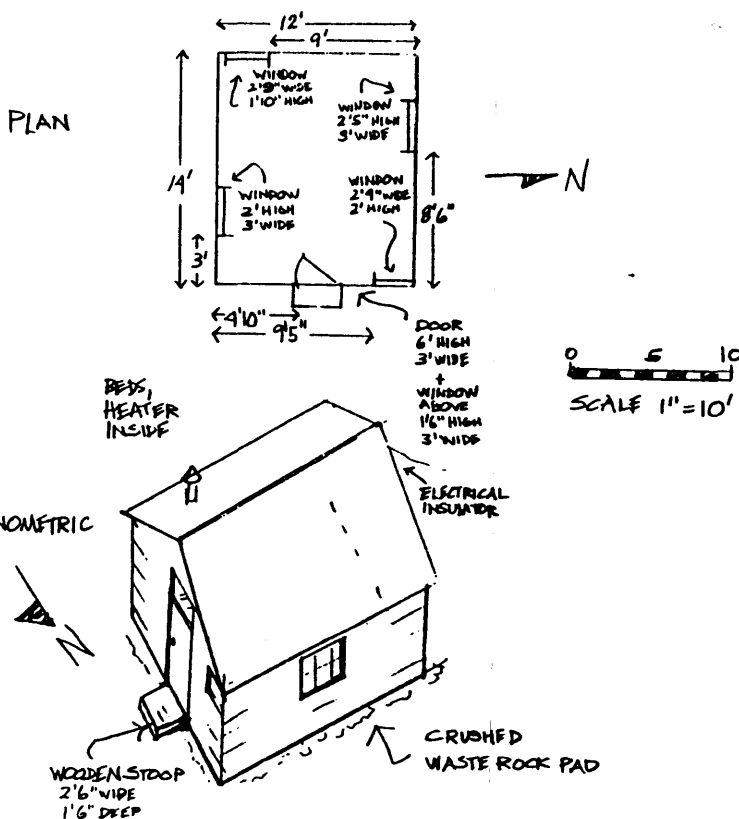 12'
9'
PLAN
WINDOW
2'9" WIDE
1'10" HIGH
WINDOW
2'5" HIGH
3' WIDE
14'
WINDOW
2' HIGH
3' WIDE
WINDOW
2'4" WIDE
2' HIGH
8'6"
N
3'
4'10"
9'5"
DOOR
6' HIGH
3' WIDE
+
WINDOW
ABOVE
1'6" HIGH
3' WIDE
0 5 10
SCALE 1"=10'
BEDS,
HEATER
INSIDE
ELECTRICAL
INSULATOR
NOMETRIC
N
CRUSHED
WASTE ROCK PAD
WOODEN STOOP
2'6" WIDE
1'6" DEEP